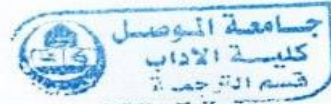 جامعة الموصل
كلية الآداب
قسم الترجمة